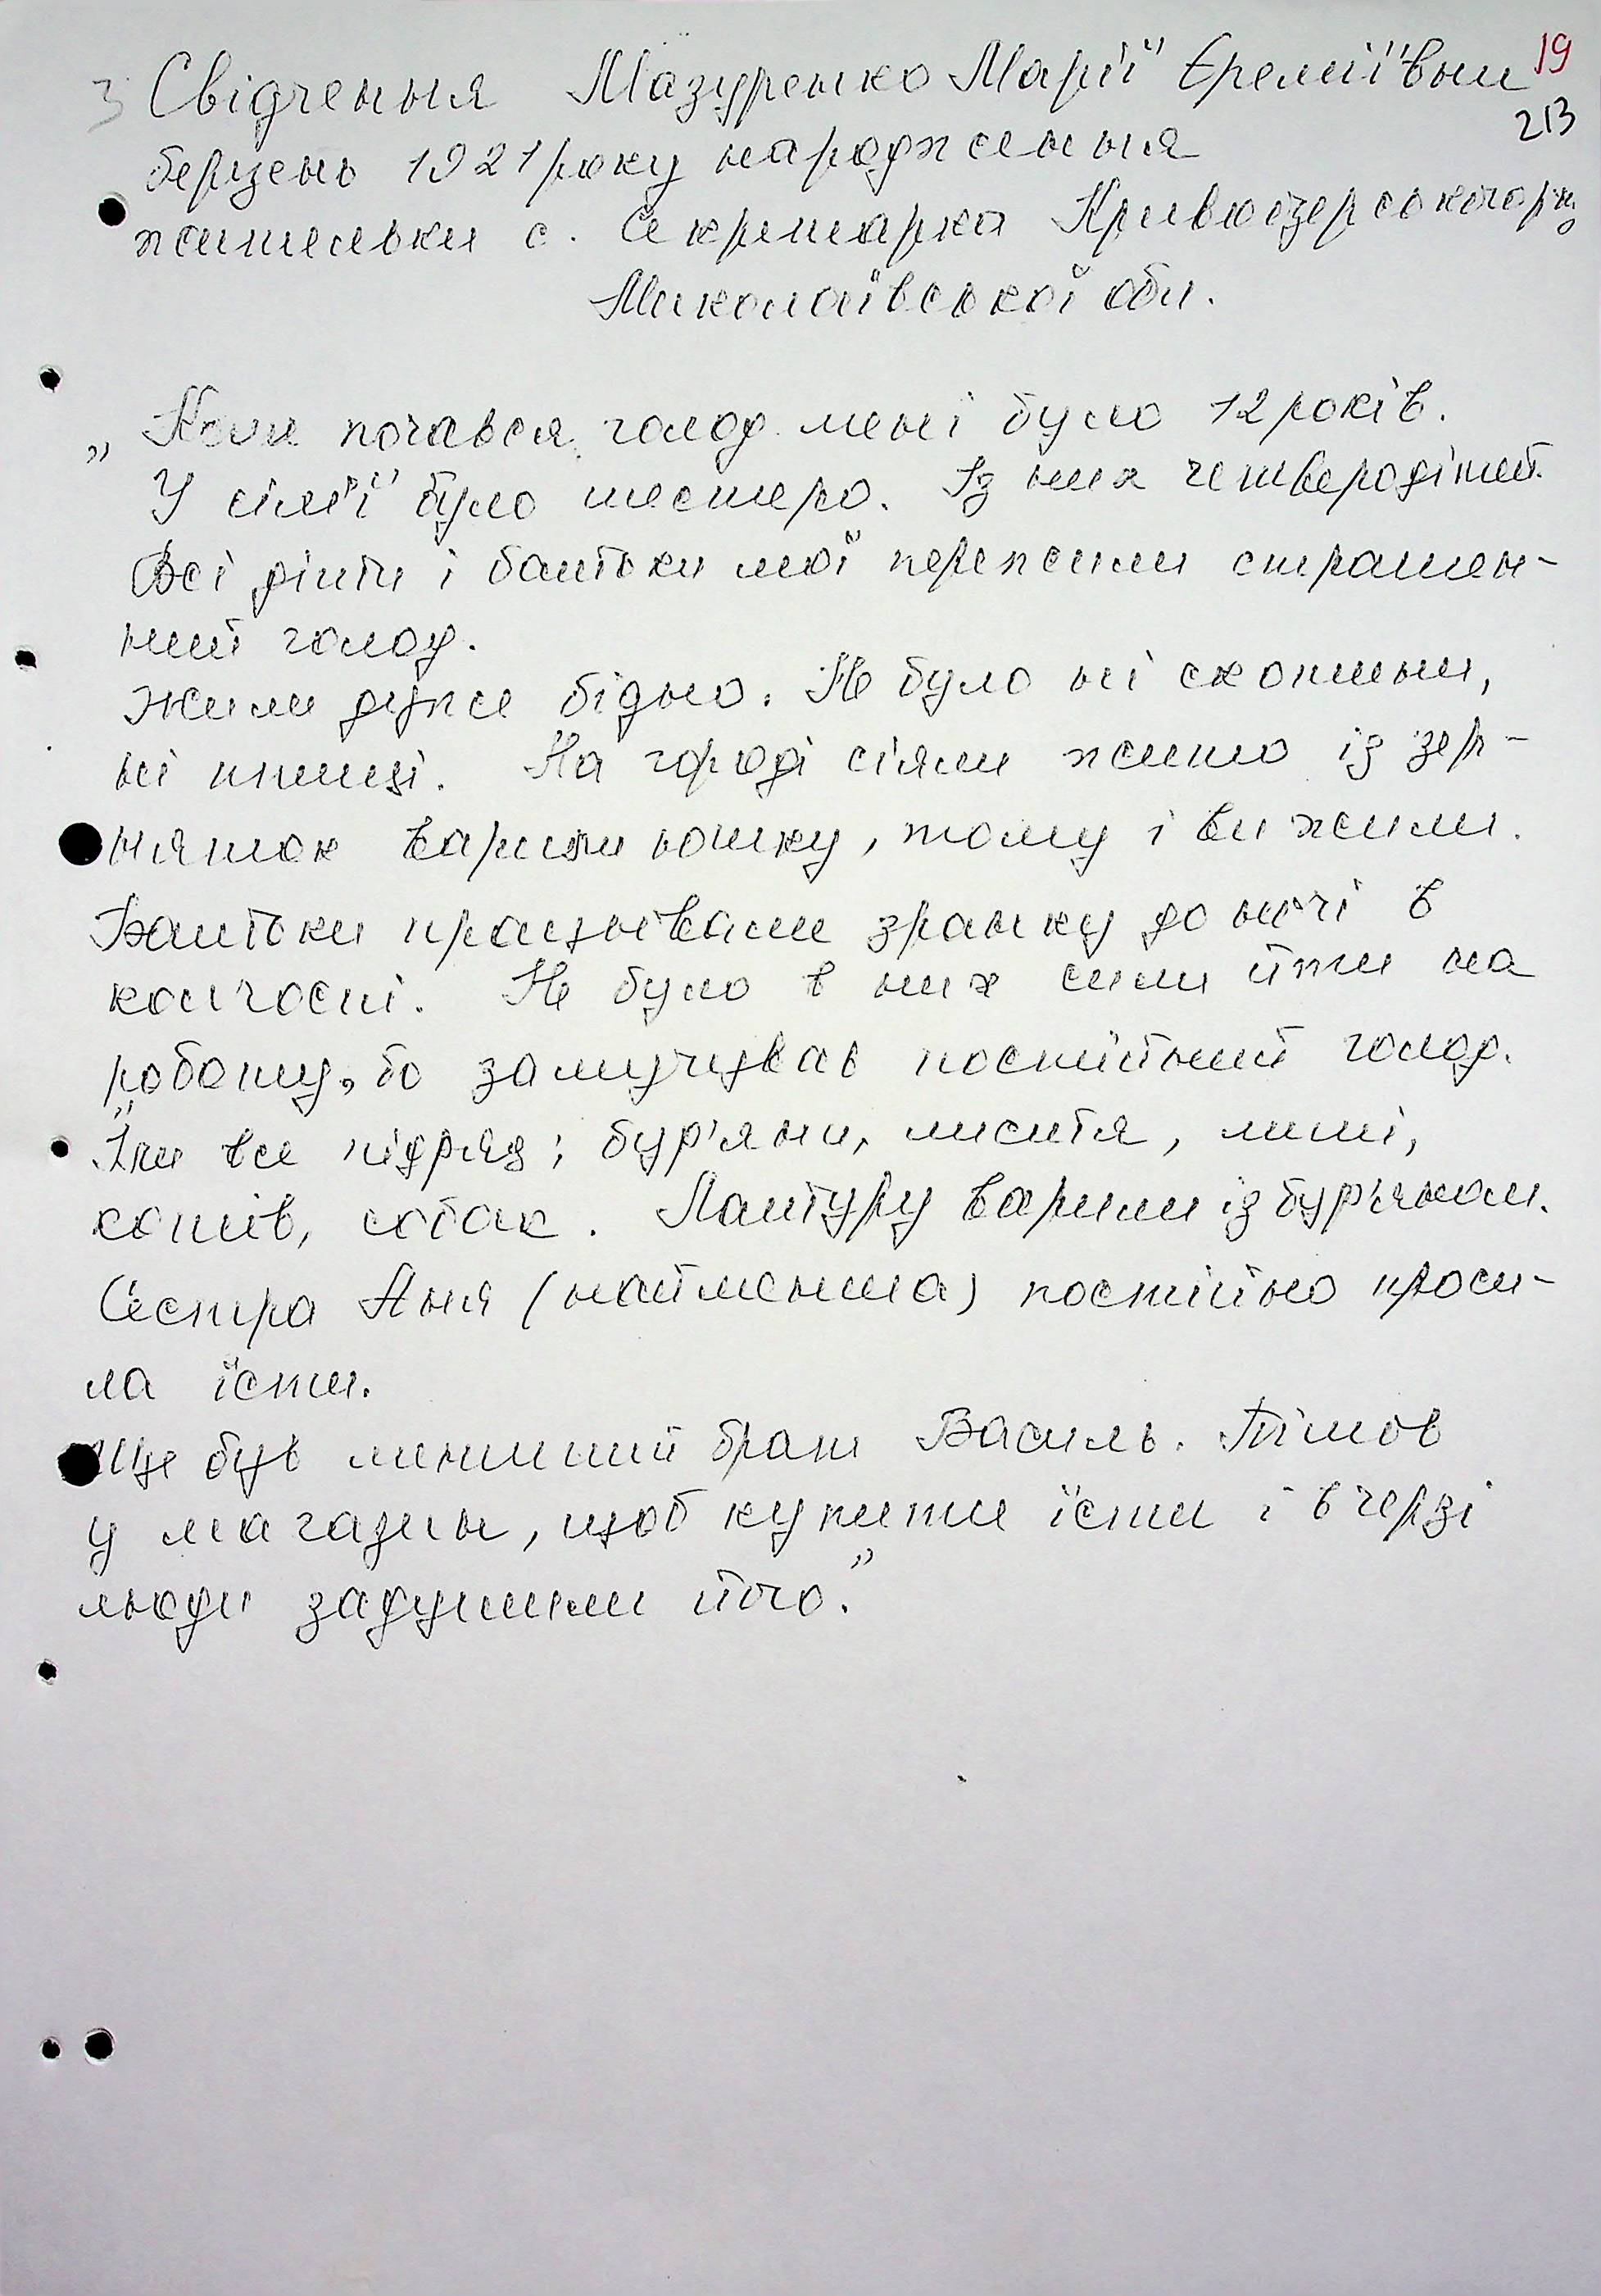 19
З Свідчення Мазуренко Марії Єреміївни
213
березень 1921 року народження
жительки с. Секретарка Кривоозерського р-ну
Миколаївської обл.
„Коли почався голод мені було 12 років.
У сім'ї було шестеро. Із них четверо дітей.
Всі діти і батьки мої пережили страшен-
ний голод.
Жили дуже бідно. Не було ні скотини,
ні птиці. На городі сіяли жито із зер-
няток варили юшку, тому і вижили.
Батьки працювали зранку до ночі в
колгоспі. Не було в них сили йти на
роботу, бо замучував постійний голод.
Їли все підряд: бур'яни, листя, миші,
котів, собак. Лантуру варили із бур'яном.
Сестра Аня (найменша) постійно проси-
ла їсти.
Ще був менший брат Василь. Пішов
у магазин, щоб купити їсти і в черзі
люди задушили його."